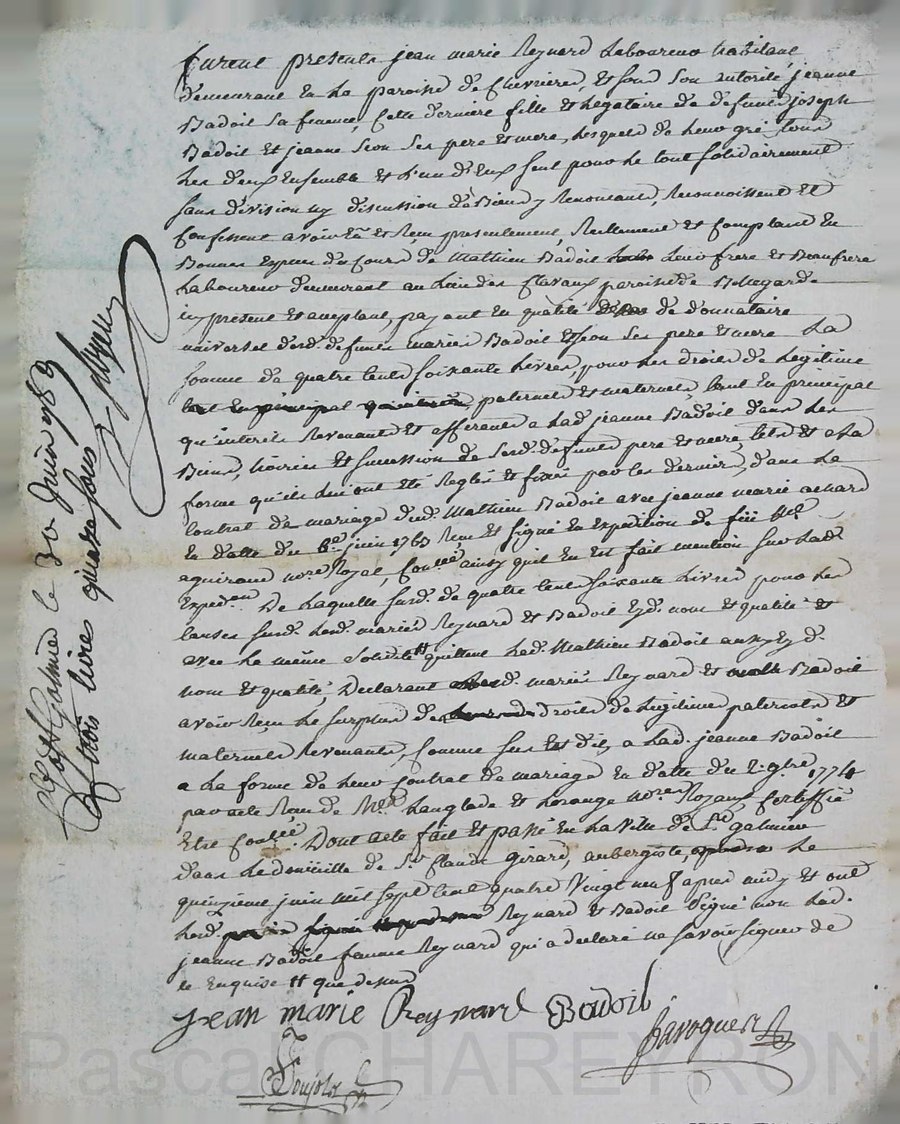 furent presents jean marie Reynard Laboureur habitant
demeurant en la paroisse de Chevrieres, et sous son autorité jeanne
Badoil sa femme, cette derniere fille et Legataire de defunts joseph
Badoil et jeanne Seon ses pere et mere, Lesquels de leur gré, tous
Les deux Ensemble et L'un d'Eux seul pour Le tout solidairement
sans division ny discussion de Biens y Renoncant, Reconnoissent Et
Confessent avoir Eu et Reçu presentement, Reellement et Comptant En
Bonnes Especes du Cours de Mathieu Badoil Leur frere et Beaufrere
Laboureur demeurant au Lieu des Clavaux paroisse de Bellegarde
cy present et aceptant, payant En qualité de donnataire
universel desd. defunts mariés Badoil et Seon ses pere et mere La
somme de quatre Cents soixante Livres, pour Les droits de Legitime
paternels et maternels, tant En principal
qu'interets Revenants et afferents a Lad. jeanne Badoil dans Les
Biens, hoiries et succession de sesd. defunts pere et mere tels et a La
forme qu'ils Lui ont été Reglés et fixés par Ces derniers, dans Le
Contrat de mariage dud. Mathieu Badoil avec jeanne marie
En datte du juin 1763 Reçu et signé En Expedition de
nore Royal, Conllé ainsy qu'il En Est fait mention sur Lad.
Expedon De Laquelle susd. de quatre Cents soixante Livres pour Les
Causes susd. Lesd. mariés Reynard et Badoil Esd. nom et qualité et
avec Le même solidité quittent Led. Mathieu Badoil aussy Esd.
nom et qualité, Declarant Lesd. mariés Reynard et Badoil
avoir Reçu Le surplus des droits de Legitime paternels et
maternels Revenants, Comme sus Est dit, a Lad. jeanne Badoil
a La forme de Leur Contrat de mariage En datte du 2. 9bre 1774
par acte Reçu de Mes Langlade et nores Royaux Certiffié
Etre Conllé. Dont acte fait et passé En La ville de St. galmier
dans Le domicille de Sr. Claude Girard, aubergiste, Le
quinzieme juin mil sept Cent quatre Vingt neuf apres midy Et ont
Lesd. Reynard et Badoil Signé non Lad.
jeanne Badoil femme Reynard qui a declaré ne savoir signer de
ce Enquise que dessus
jean marie Reynard Badoil
Ravoguer
St Galmier le 30 Juin 1789
trois livres quinze sous
Pascal CHAREYRON